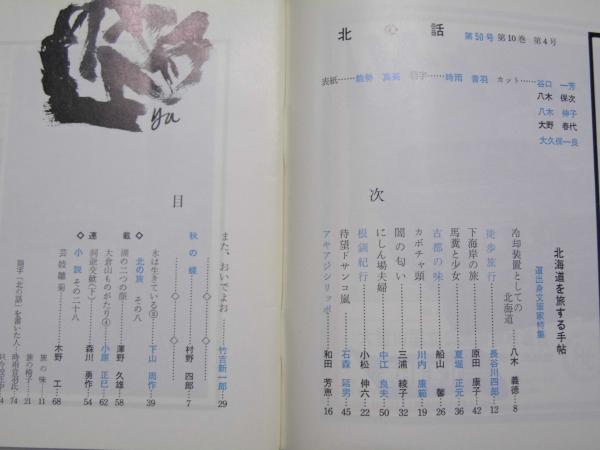 北の話 第50号 第10巻 第4号
表紙……能勢 真英 題字……時雨 音羽 カット……谷口 一芳
八木 保次
八木 伸子
大野 春代
大久保一良
目次
北海道を旅する手帖
道出身文筆家特集
冷却装置としての北海道……八木 義徳…8
徒歩旅行……長谷川四郎…12
下海岸の旅……原田 康子…42
馬糞と少女……夏堀 正元…36
古都の味……船山 馨…26
カボチャ頭……川内 康範…19
闇の匂い……三浦 綾子…32
にしん場た婦……中江 良夫…50
根釧紀行……小松 伸六…22
待望ドサンコ嵐……石森 延男…45
アキアジシリッポ……和田 芳恵…16
また、おいでよお……竹吉新一郎…29
秋の蝶……村野 四郎…7
氷は生きている⑧……下山 周作…39
◇北の族 その八
湖の二つの顔……澤野 久雄…58
大倉山ものがたり④……小原 正巳…62
洞爺交献(下)……森川 勇作…54
連載
◇小説 その二十八
芸妓雛菊……木野 工…68
旅の味…11
旅の椅子…21
題字「北の話」を書いた人・時雨音羽氏…74
ya